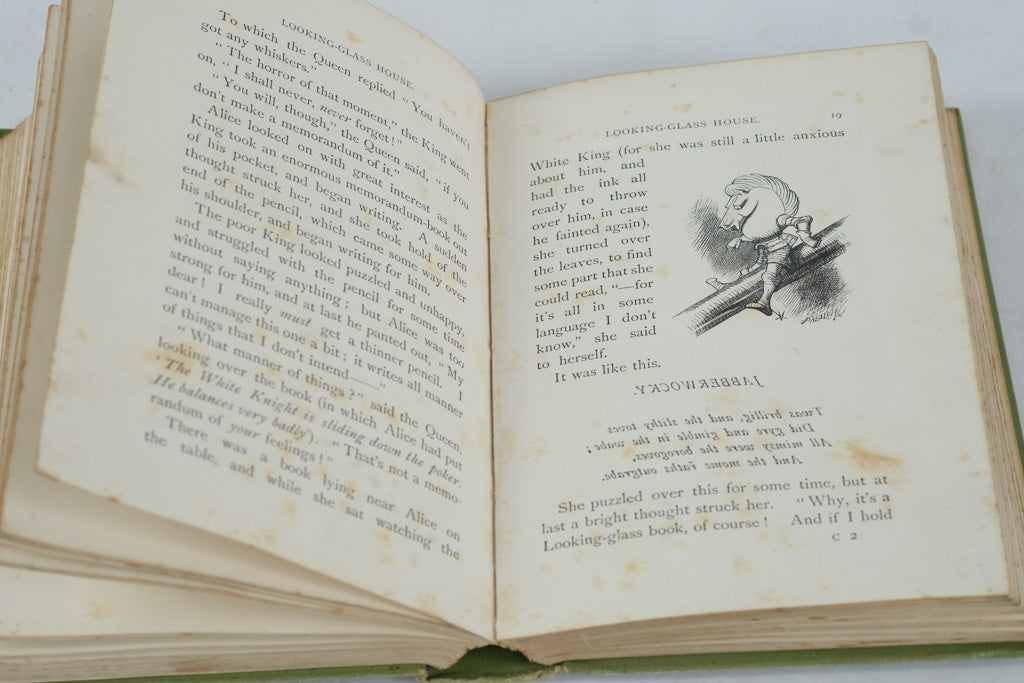 LOOKING-GLASS HOUSE.
To which the Queen replied “You haven't
got any whiskers.”
“The horror of that moment,” the King went
on, “I shall never, never forget!”
“You will, though,” the Queen said, “if you
don't make a memorandum of it.”
Alice looked on with great interest as the
King took an enormous memorandum-book out
of his pocket, and began writing. A sudden
thought struck her, and she took hold of the
end of the pencil, which came some way over
his shoulder, and began writing for him.
The poor King looked puzzled and unhappy,
and struggled with the pencil for some time
without saying anything; but Alice was too
strong for him, and at last he panted out, “My
dear! I really must get a thinner pencil. I
can't manage this one a bit; it writes all manner
of things that I don't intend——”
“What manner of things?” said the Queen,
looking over the book (in which Alice had put
‘The White Knight is sliding down the poker.
He balances very badly’). “That's not a memo-
randum of your feelings!”
There was a book lying near Alice on
the table, and while she sat watching the
LOOKING-GLASS HOUSE.
19
White King (for she was still a little anxious
about him, and
had the ink all
ready to throw
over him, in case
he fainted again),
she turned over
the leaves, to find
some part that she
could read, “—for
it's all in some
language I don't
know,” she said
to herself.
It was like this.
JABBERWOCKY.
Twas brillig, and the slithy toves
Did gyre and gimble in the wabe;
All mimsy were the borogoves,
And the mome raths outgrabe.
She puzzled over this for some time, but at
last a bright thought struck her. “Why, it's a
Looking-glass book, of course! And if I hold
C 2